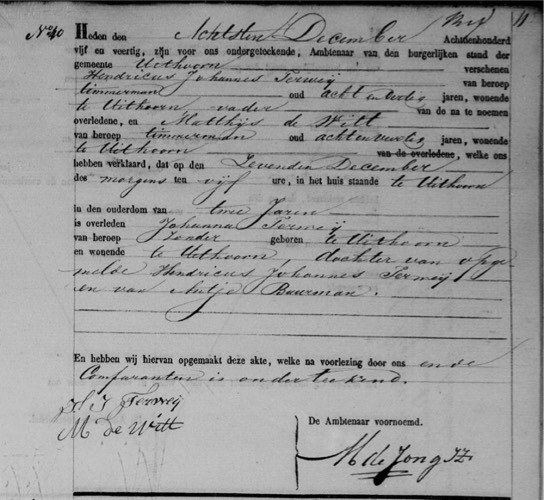 No 40
Heden den Achtsten December Achttienhonderd
vijf en veertig, zijn voor ons ondergeteekende, Ambtenaar van den burgerlijken stand der
gemeente Uithoorn verschenen
Hendricus Johannes Terweij van beroep
timmerman oud acht en veertig jaren, wonende
te Uithoorn vader van de na te noemen
overledene, en Matthijs de Witt
van beroep timmerman oud acht en veertig jaren, wonende
te Uithoorn van de overledene, welke ons
hebben verklaard, dat op den Zevenden December
des morgens ten vijf ure, in het huis staande te Uithoorn
in den ouderdom van twee Jaren
is overleden Johanna Terweij
van beroep Zonder geboren te Uithoorn
en wonende te Uithoorn, dochter van opge
melde Hendricus Johannes Terweij
en van Antje Buurman.
En hebben wij hiervan opgemaakt deze akte, welke na voorlezing door ons en de
Comparanten is onderteekend.
H J Terweij
M de Witt
De Ambtenaar voornoemd.
M de Jong Jz